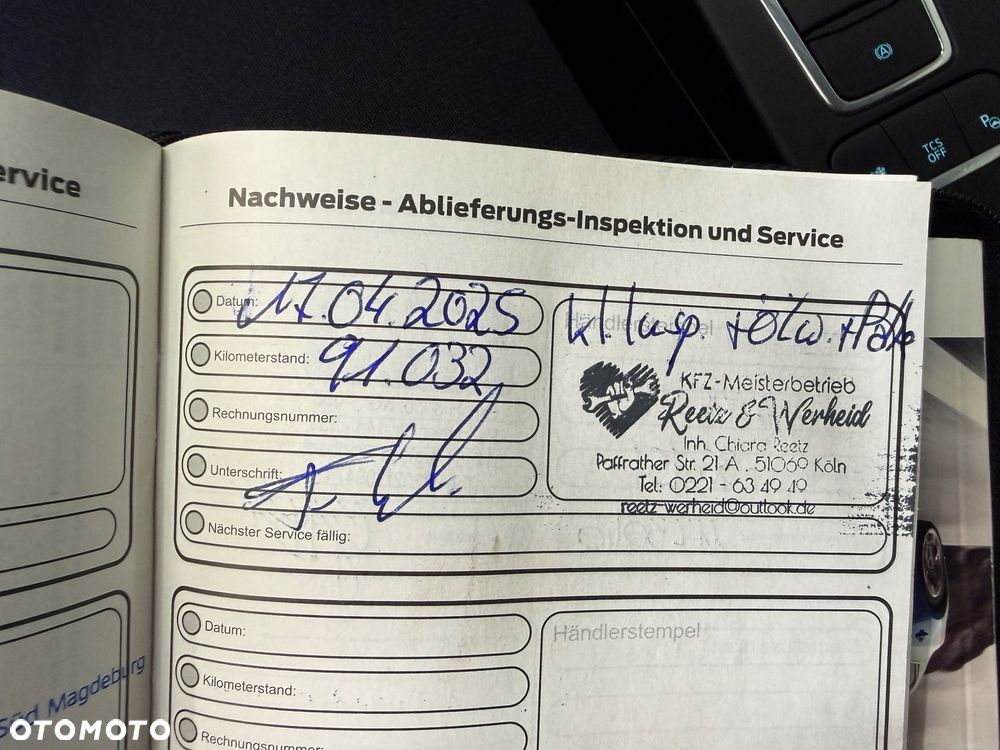 ervice
Nachweise - Ablieferungs-Inspektion und Service
Datum: 17.04.2025
Kilometerstand: 91.032
Rechnungsnummer:
Unterschrift:
Nächster Service fällig:
Händlerstempel
kl. Insp. + Ölw. +
KFZ-Meisterbetrieb
Reetz & Werheid
Inh. Chiara Reetz
Paffrather Str. 21 A . 51069 Köln
Tel: 0221 - 63 49 49
reetz-werheid@outlook.de
Datum:
Kilometerstand:
Rechnungsnummer:
Händlerstempel
Süd Magdeburg
TCS
OFF
P
OTOMOTO